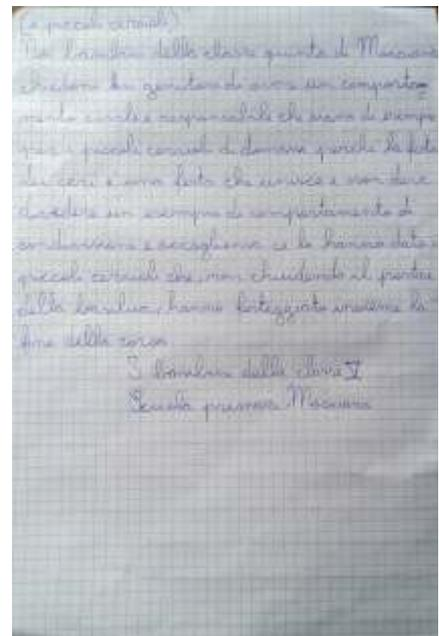 (i piccoli ceraioli)
Noi bambini della classe quinta di Mocaiana
chiediamo ai genitori di avere un comporta=
mento civile e responsabile che siano di esempio
per i piccoli ceraioli di domani perché la festa
dei ceri è una festa che unisce e non deve
dividere un esempio di comportamento di
condivisione e accoglienza ce lo hanno dato i
piccoli ceraioli che, non chiudendo il portone
della basilica, hanno festeggiato insieme la
fine della corsa
I bambini della classe V
Scuola primaria Mocaiana